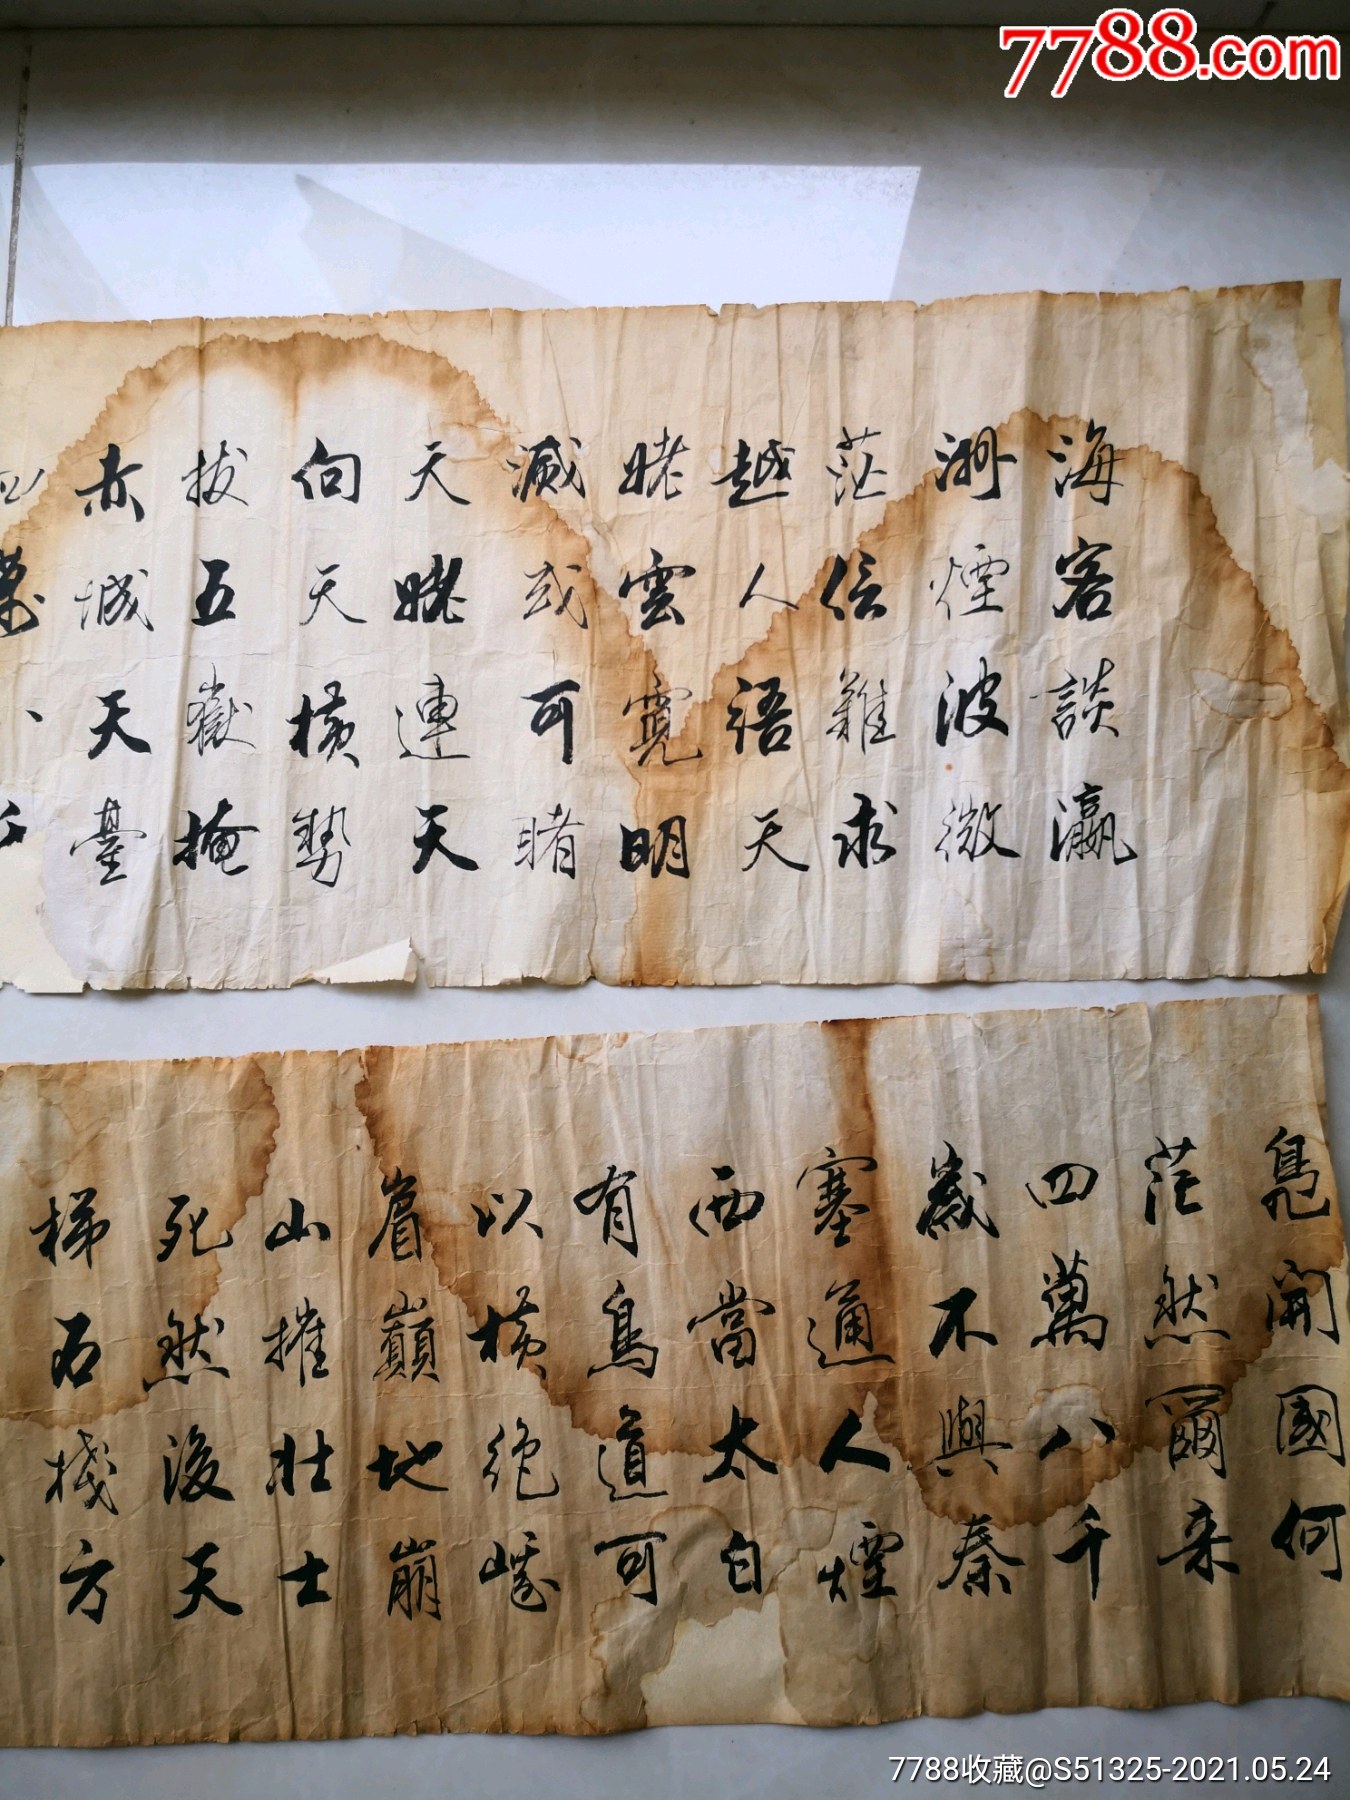 7788.com
海客談瀛
洲煙波微
茫信難求
越人語天
姥雲霓明
滅或可睹
天姥連天
向天橫勢
拔五嶽掩
赤城天臺
鳧開國何
茫然爾来
四萬八千
歲不與秦
塞通人煙
西當太白
有鳥道可
以橫絕峨
眉巔地崩
山摧壯士
死然後天
梯石棧方
7788收藏@S51325-2021.05.24